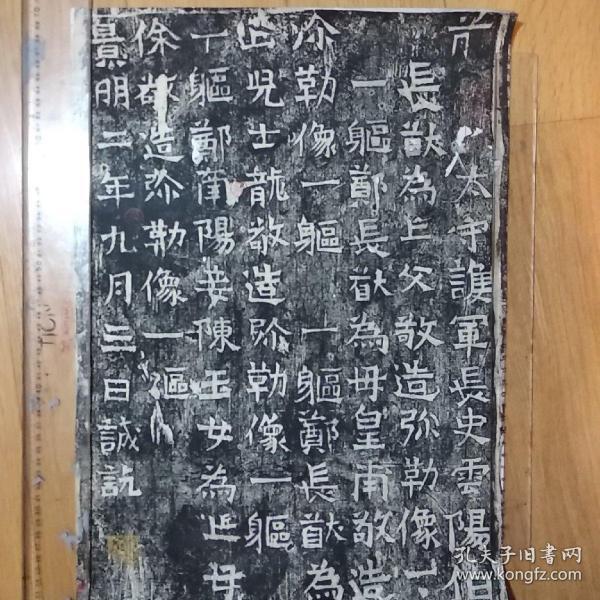 前 太守護軍長史雲陽伯
長猷為亡父敬造弥勒像一
一軀鄭長猷為母皇甫敬造
弥勒像一軀 一軀鄭長猷為
亡兒士龍敬造弥勒像一軀
一軀鄭南陽妾陳玉女為亡母
徐敬造弥勒像一軀
景明二年九月三日誠訖
孔夫子旧書网
www.kongfz.com